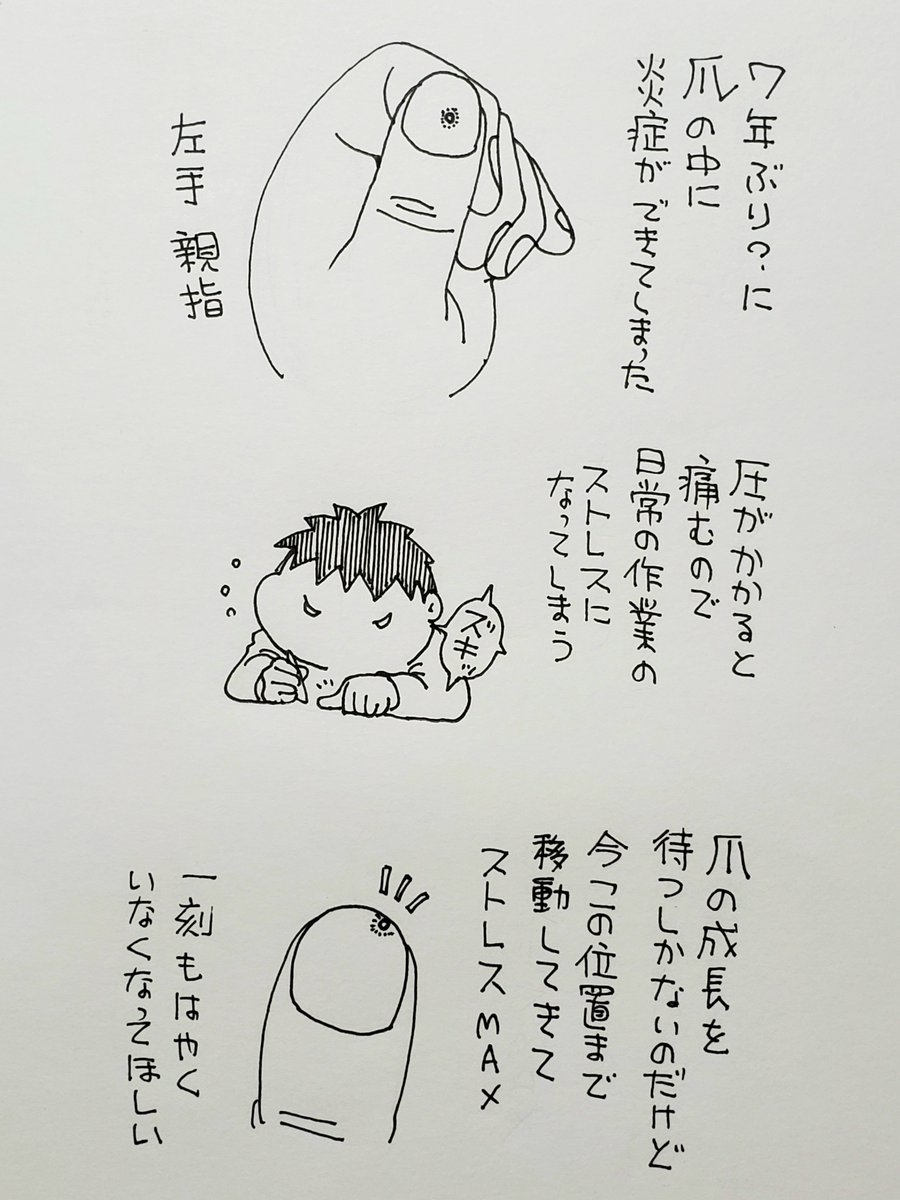 7年ぶり?に
爪の中に
炎症ができてしまった
左手 親指
圧がかかると
痛むので
日常の作業の
ストレスに
なってしまう
ズキッ
爪の成長を
待つしかないのだけど
今この位置まで
移動してきて
ストレスMAX
一刻もはやく
いなくなってほしい